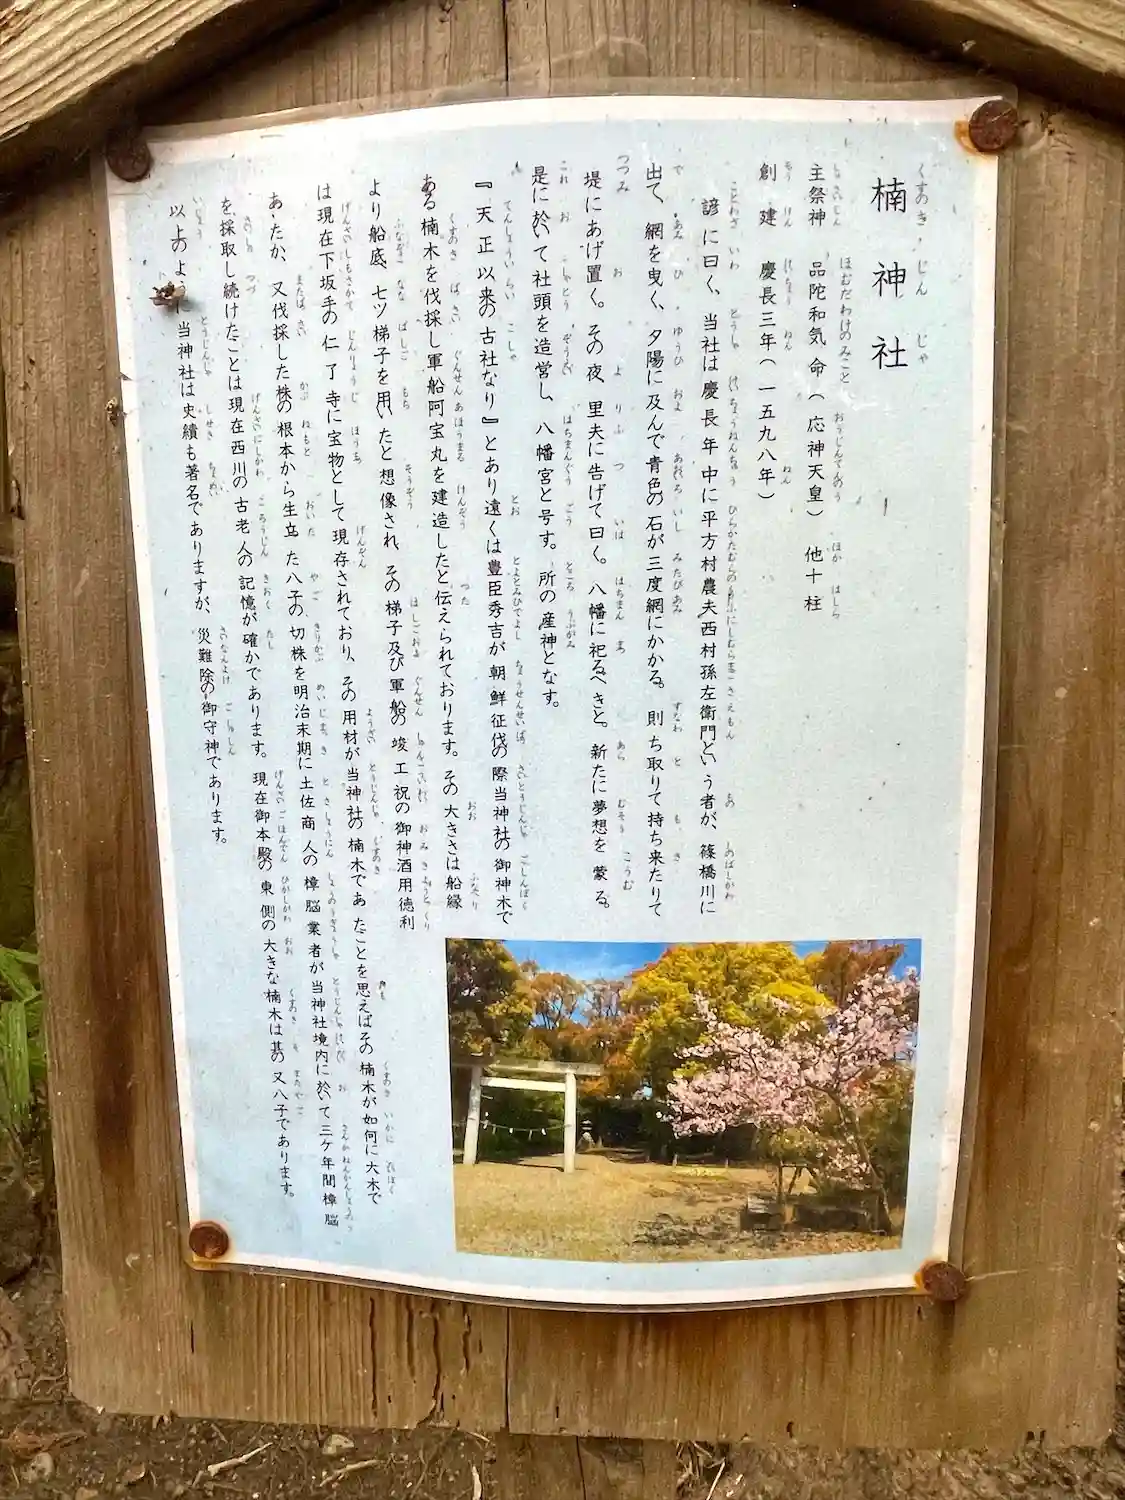 楠神社
主祭神 品陀和気命(応神天皇) 他十柱
創建 慶長三年(一五九八年)
諺に曰く、当社は慶長年中に平方村農夫西村孫左衛門という者が、篠橋川に
出て、網を曳く、夕陽に及んで青色の石が三度網にかかる。則ち取りて持ち来たりて
堤にあげ置く。その夜、里夫に告げて曰く。八幡に祀るべきと。新たに夢想を蒙る。
是に於いて社頭を造営し、八幡宮と号す。所の産神となす。
『天正以来の古社なり』とあり遠くは豊臣秀吉が朝鮮征伐の際当神社の御神木で
ある楠木を伐採し軍船阿宝丸を建造したと伝えられております。その大きさは船縁
より船底、七ツ梯子を用いたと想像され、その梯子及び軍船の竣工祝の御神酒用徳利
は現在下坂手の仁了寺に宝物として現存されており、その用材が当神社の楠木であったことを思えばその楠木が如何に大木で
あったか、又伐採した株の根本から生立った八子の切株を明治末期に土佐商人の樟脳業者が当神社境内に於いて三ケ年間樟脳
を採取し続けたことは現在西川の古老人の記憶が確かであります。現在御本殿の東側の大きな楠木は其の又八子であります。
以上のように当神社は史績も著名でありますが、災難除の御守神であります。